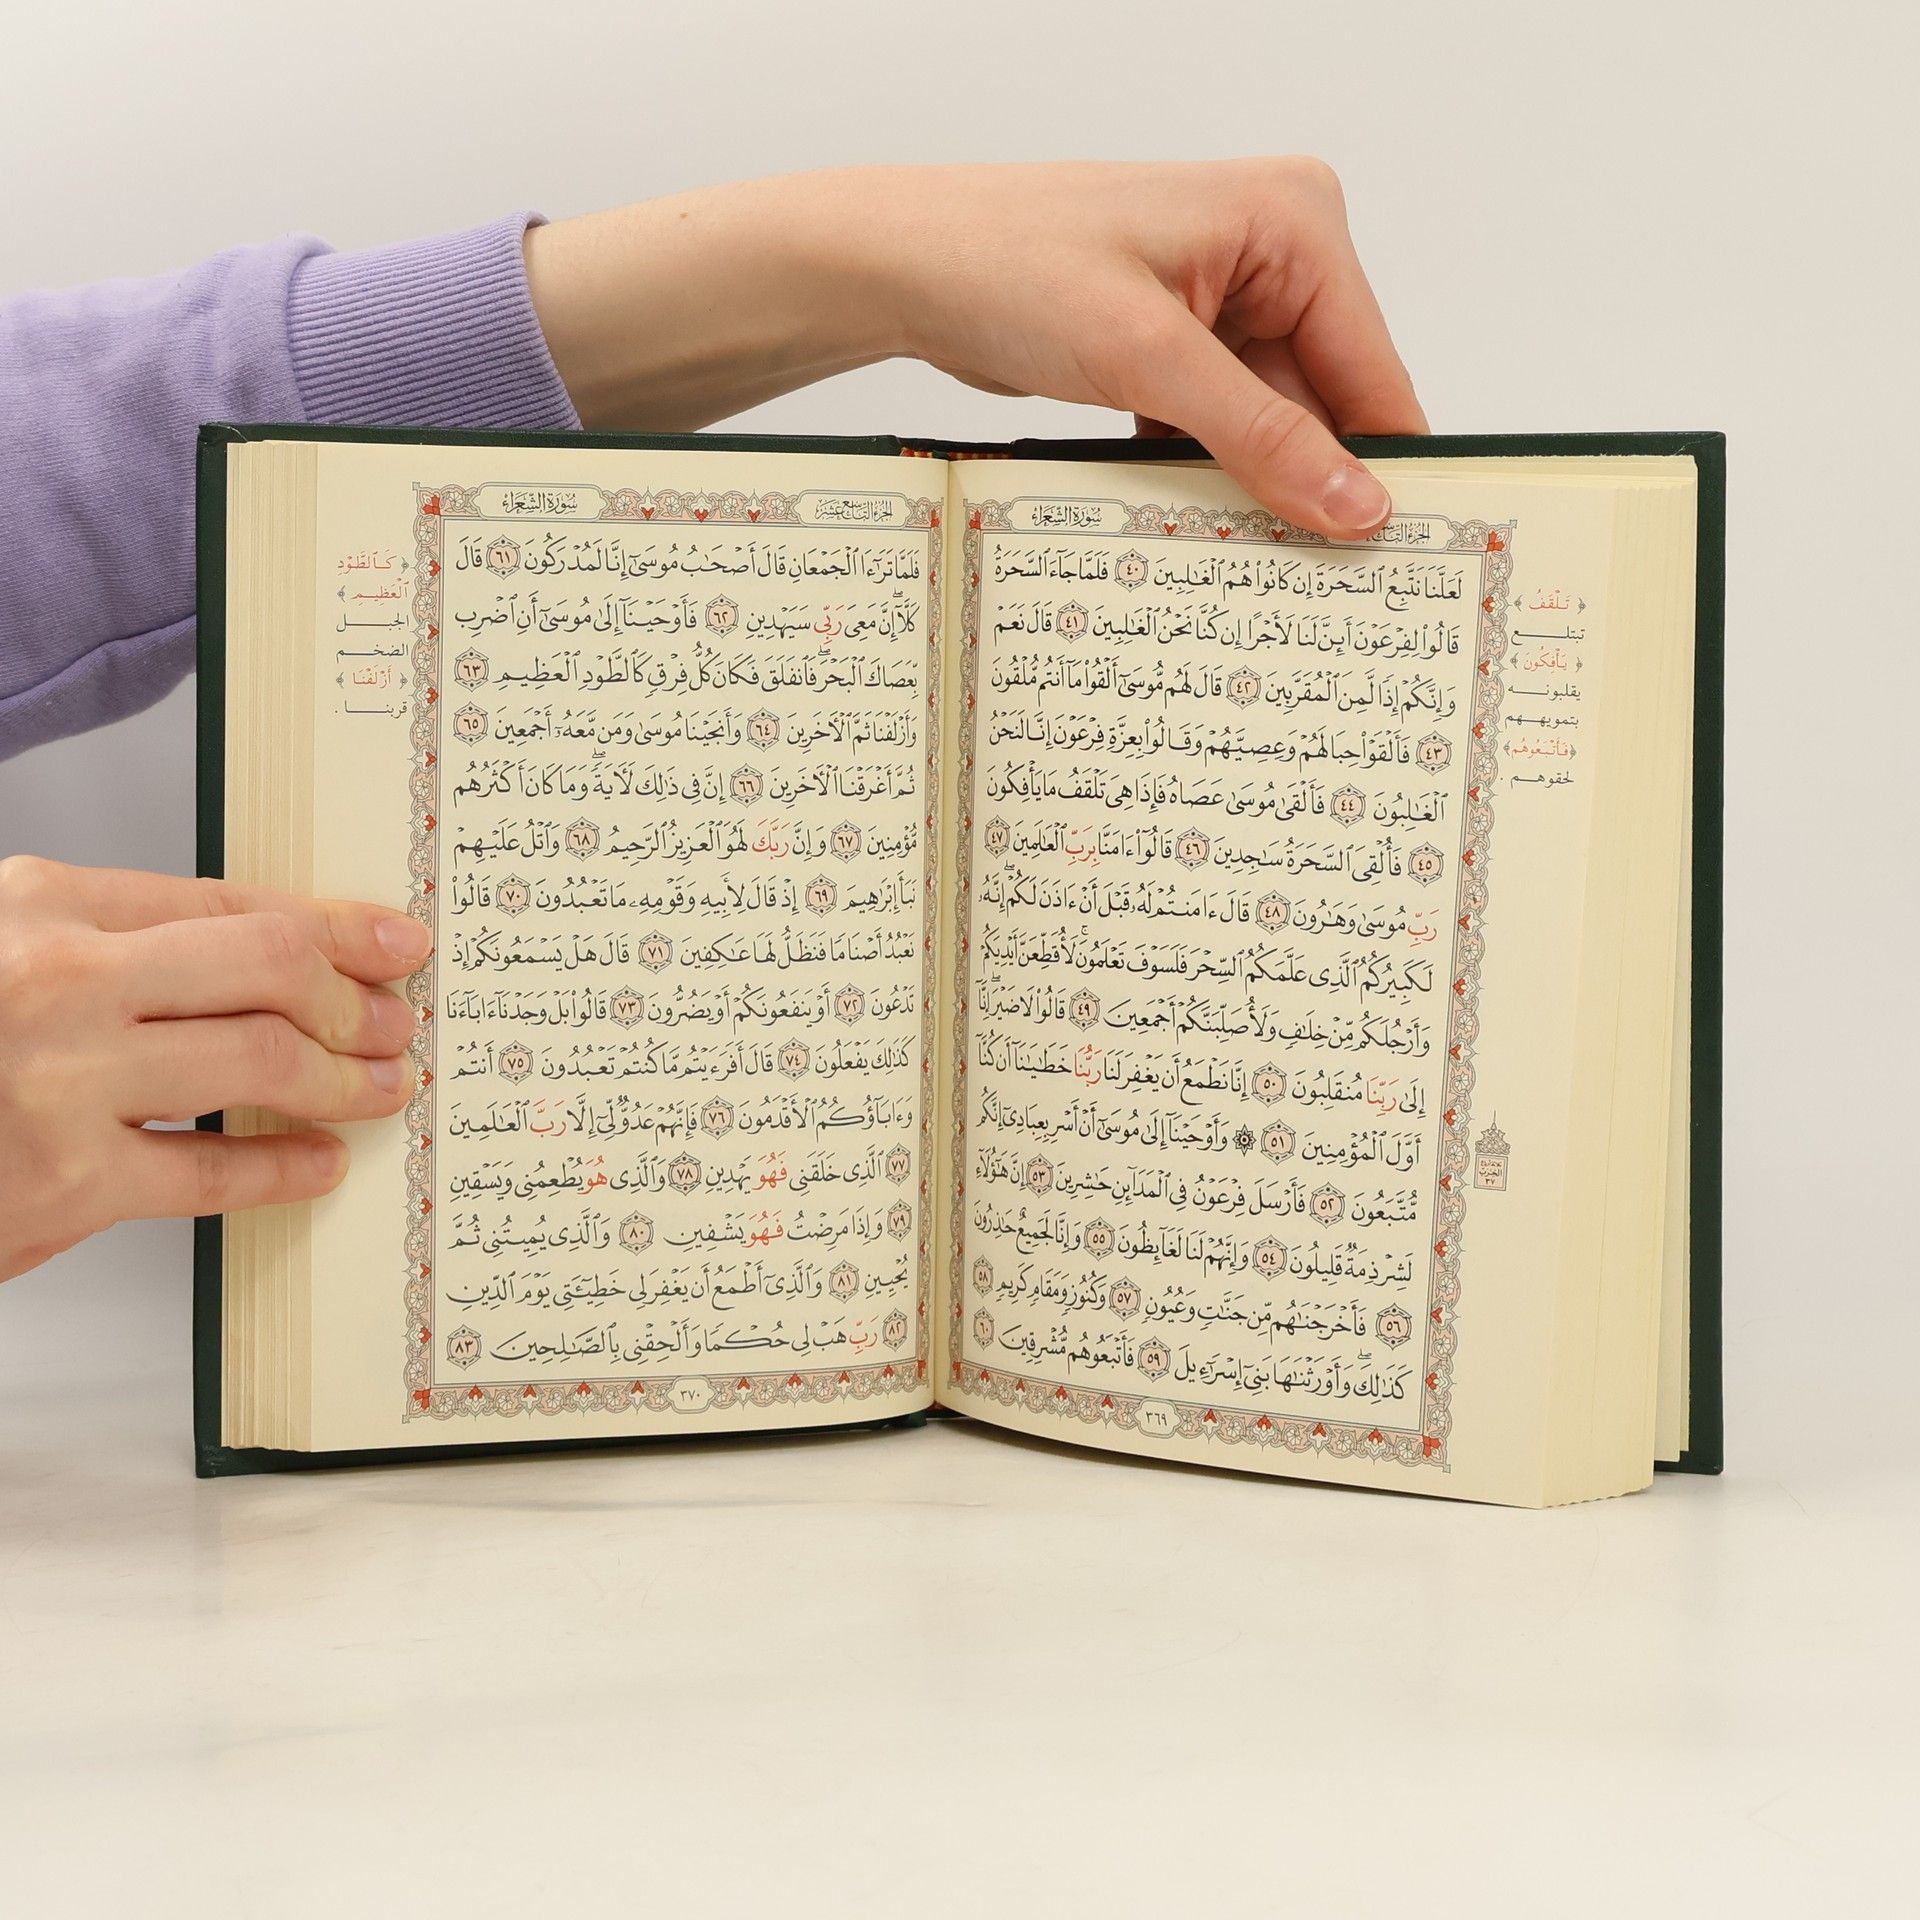 سُورَةُ الشُّعَرَاءِ
لَعَلَّنَا نَتَّبِعُ ٱلسَّحَرَةَ إِن كَانُوا۟ هُمُ ٱلْغَٰلِبِينَ ٤٠ فَلَمَّا جَآءَ ٱلسَّحَرَةُ
قَالُوا۟ لِفِرْعَوْنَ أَئِنَّ لَنَا لَأَجْرًا إِن كُنَّا نَحْنُ ٱلْغَٰلِبِينَ ٤١ قَالَ نَعَمْ
وَإِنَّكُمْ إِذًا لَّمِنَ ٱلْمُقَرَّبِينَ ٤٢ قَالَ لَهُم مُّوسَىٰٓ أَلْقُوا۟ مَآ أَنتُم مُّلْقُونَ
٤٣ فَأَلْقَوْا۟ حِبَالَهُمْ وَعِصِيَّهُمْ وَقَالُوا۟ بِعِزَّةِ فِرْعَوْنَ إِنَّا لَنَحْنُ
ٱلْغَٰلِبُونَ ٤٤ فَأَلْقَىٰ مُوسَىٰ عَصَاهُ فَإِذَا هِىَ تَلْقَفُ مَا يَأْفِكُونَ
٤٥ فَأُلْقِىَ ٱلسَّحَرَةُ سَٰجِدِينَ ٤٦ قَالُوٓا۟ ءَامَنَّا بِرَبِّ ٱلْعَٰلَمِينَ ٤٧
رَبِّ مُوسَىٰ وَهَٰرُونَ ٤٨ قَالَ ءَامَنتُمْ لَهُۥ قَبْلَ أَنْ ءَاذَنَ لَكُمْ ۖ إِنَّهُۥ
لَكَبِيرُكُمُ ٱلَّذِى عَلَّمَكُمُ ٱلسِّحْرَ فَلَسَوْفَ تَعْلَمُونَ ۚ لَأُقَطِّعَنَّ أَيْدِيَكُمْ
وَأَرْجُلَكُم مِّنْ خِلَٰفٍ وَلَأُصَلِّبَنَّكُمْ أَجْمَعِينَ ٤٩ قَالُوا۟ لَا ضَيْرَ ۖ إِنَّآ
إِلَىٰ رَبِّنَا مُنقَلِبُونَ ٥٠ إِنَّا نَطْمَعُ أَن يَغْفِرَ لَنَا رَبُّنَا خَطَٰيَٰنَآ أَن كُنَّآ
أَوَّلَ ٱلْمُؤْمِنِينَ ٥١ ۞ وَأَوْحَيْنَآ إِلَىٰ مُوسَىٰٓ أَنْ أَسْرِ بِعِبَادِىٓ إِنَّكُم
مُّتَّبَعُونَ ٥٢ فَأَرْسَلَ فِرْعَوْنُ فِى ٱلْمَدَآئِنِ حَٰشِرِينَ ٥٣ إِنَّ هَٰٓؤُلَآءِ
لَشِرْذِمَةٌ قَلِيلُونَ ٥٤ وَإِنَّهُمْ لَنَا لَغَآئِظُونَ ٥٥ وَإِنَّا لَجَمِيعٌ حَٰذِرُونَ
٥٦ فَأَخْرَجْنَٰهُم مِّن جَنَّٰتٍ وَعُيُونٍ ٥٧ وَكُنُوزٍ وَمَقَامٍ كَرِيمٍ ٥٨
كَذَٰلِكَ ۖ وَأَوْرَثْنَٰهَا بَنِىٓ إِسْرَٰٓءِيلَ ٥٩ فَأَتْبَعُوهُم مُّشْرِقِينَ ٦٠
٣٦٩
﴿ تَلْقَفُ ﴾
تبتلـــع
﴿ يَأْفِكُونَ ﴾
يقلبونـــه
بتمويههم
﴿ فَأَتْبَعُوهُم ﴾
لحقوهـم .
الجُزْءُ التَّاسِعَ عَشَر
سُورَةُ الشُّعَرَاءِ
فَلَمَّا تَرَٰٓءَا ٱلْجَمْعَانِ قَالَ أَصْحَٰبُ مُوسَىٰٓ إِنَّا لَمُدْرَكُونَ ٦١ قَالَ
كَلَّآ ۖ إِنَّ مَعِىَ رَبِّى سَيَهْدِينِ ٦٢ فَأَوْحَيْنَآ إِلَىٰ مُوسَىٰٓ أَنِ ٱضْرِب
بِّعَصَاكَ ٱلْبَحْرَ ۖ فَٱنفَلَقَ فَكَانَ كُلُّ فِرْقٍ كَٱلطَّوْدِ ٱلْعَظِيمِ ٦٣
وَأَزْلَفْنَا ثَمَّ ٱلْءَاخَرِينَ ٦٤ وَأَنجَيْنَا مُوسَىٰ وَمَن مَّعَهُۥٓ أَجْمَعِينَ ٦٥
ثُمَّ أَغْرَقْنَا ٱلْءَاخَرِينَ ٦٦ إِنَّ فِى ذَٰلِكَ لَءَايَةً ۖ وَمَا كَانَ أَكْثَرُهُم
مُّؤْمِنِينَ ٦٧ وَإِنَّ رَبَّكَ لَهُوَ ٱلْعَزِيزُ ٱلرَّحِيمُ ٦٨ وَٱتْلُ عَلَيْهِمْ
نَبَأَ إِبْرَٰهِيمَ ٦٩ إِذْ قَالَ لِأَبِيهِ وَقَوْمِهِۦ مَا تَعْبُدُونَ ٧٠ قَالُوا۟
نَعْبُدُ أَصْنَامًا فَنَظَلُّ لَهَا عَٰكِفِينَ ٧١ قَالَ هَلْ يَسْمَعُونَكُمْ إِذْ
تَدْعُونَ ٧٢ أَوْ يَنفَعُونَكُمْ أَوْ يَضُرُّونَ ٧٣ قَالُوا۟ بَلْ وَجَدْنَآ ءَابَآءَنَا
كَذَٰلِكَ يَفْعَلُونَ ٧٤ قَالَ أَفَرَءَيْتُم مَّا كُنتُمْ تَعْبُدُونَ ٧٥ أَنتُمْ
وَءَابَآؤُكُمُ ٱلْأَقْدَمُونَ ٧٦ فَإِنَّهُمْ عَدُوٌّ لِّىٓ إِلَّا رَبَّ ٱلْعَٰلَمِينَ
٧٧ ٱلَّذِى خَلَقَنِى فَهُوَ يَهْدِينِ ٧٨ وَٱلَّذِى هُوَ يُطْعِمُنِى وَيَسْقِينِ
٧٩ وَإِذَا مَرِضْتُ فَهُوَ يَشْفِينِ ٨٠ وَٱلَّذِى يُمِيتُنِى ثُمَّ
يُحْيِينِ ٨١ وَٱلَّذِىٓ أَطْمَعُ أَن يَغْفِرَ لِى خَطِيٓـَٔتِى يَوْمَ ٱلدِّينِ
٨٢ رَبِّ هَبْ لِى حُكْمًا وَأَلْحِقْنِى بِٱلصَّٰلِحِينَ ٨٣
٣٧٠
﴿ كَٱلطَّوْدِ
ٱلْعَظِيمِ ﴾
الجبـــل
الضخـــم
﴿ أَزْلَفْنَا ﴾
قربنـــا .